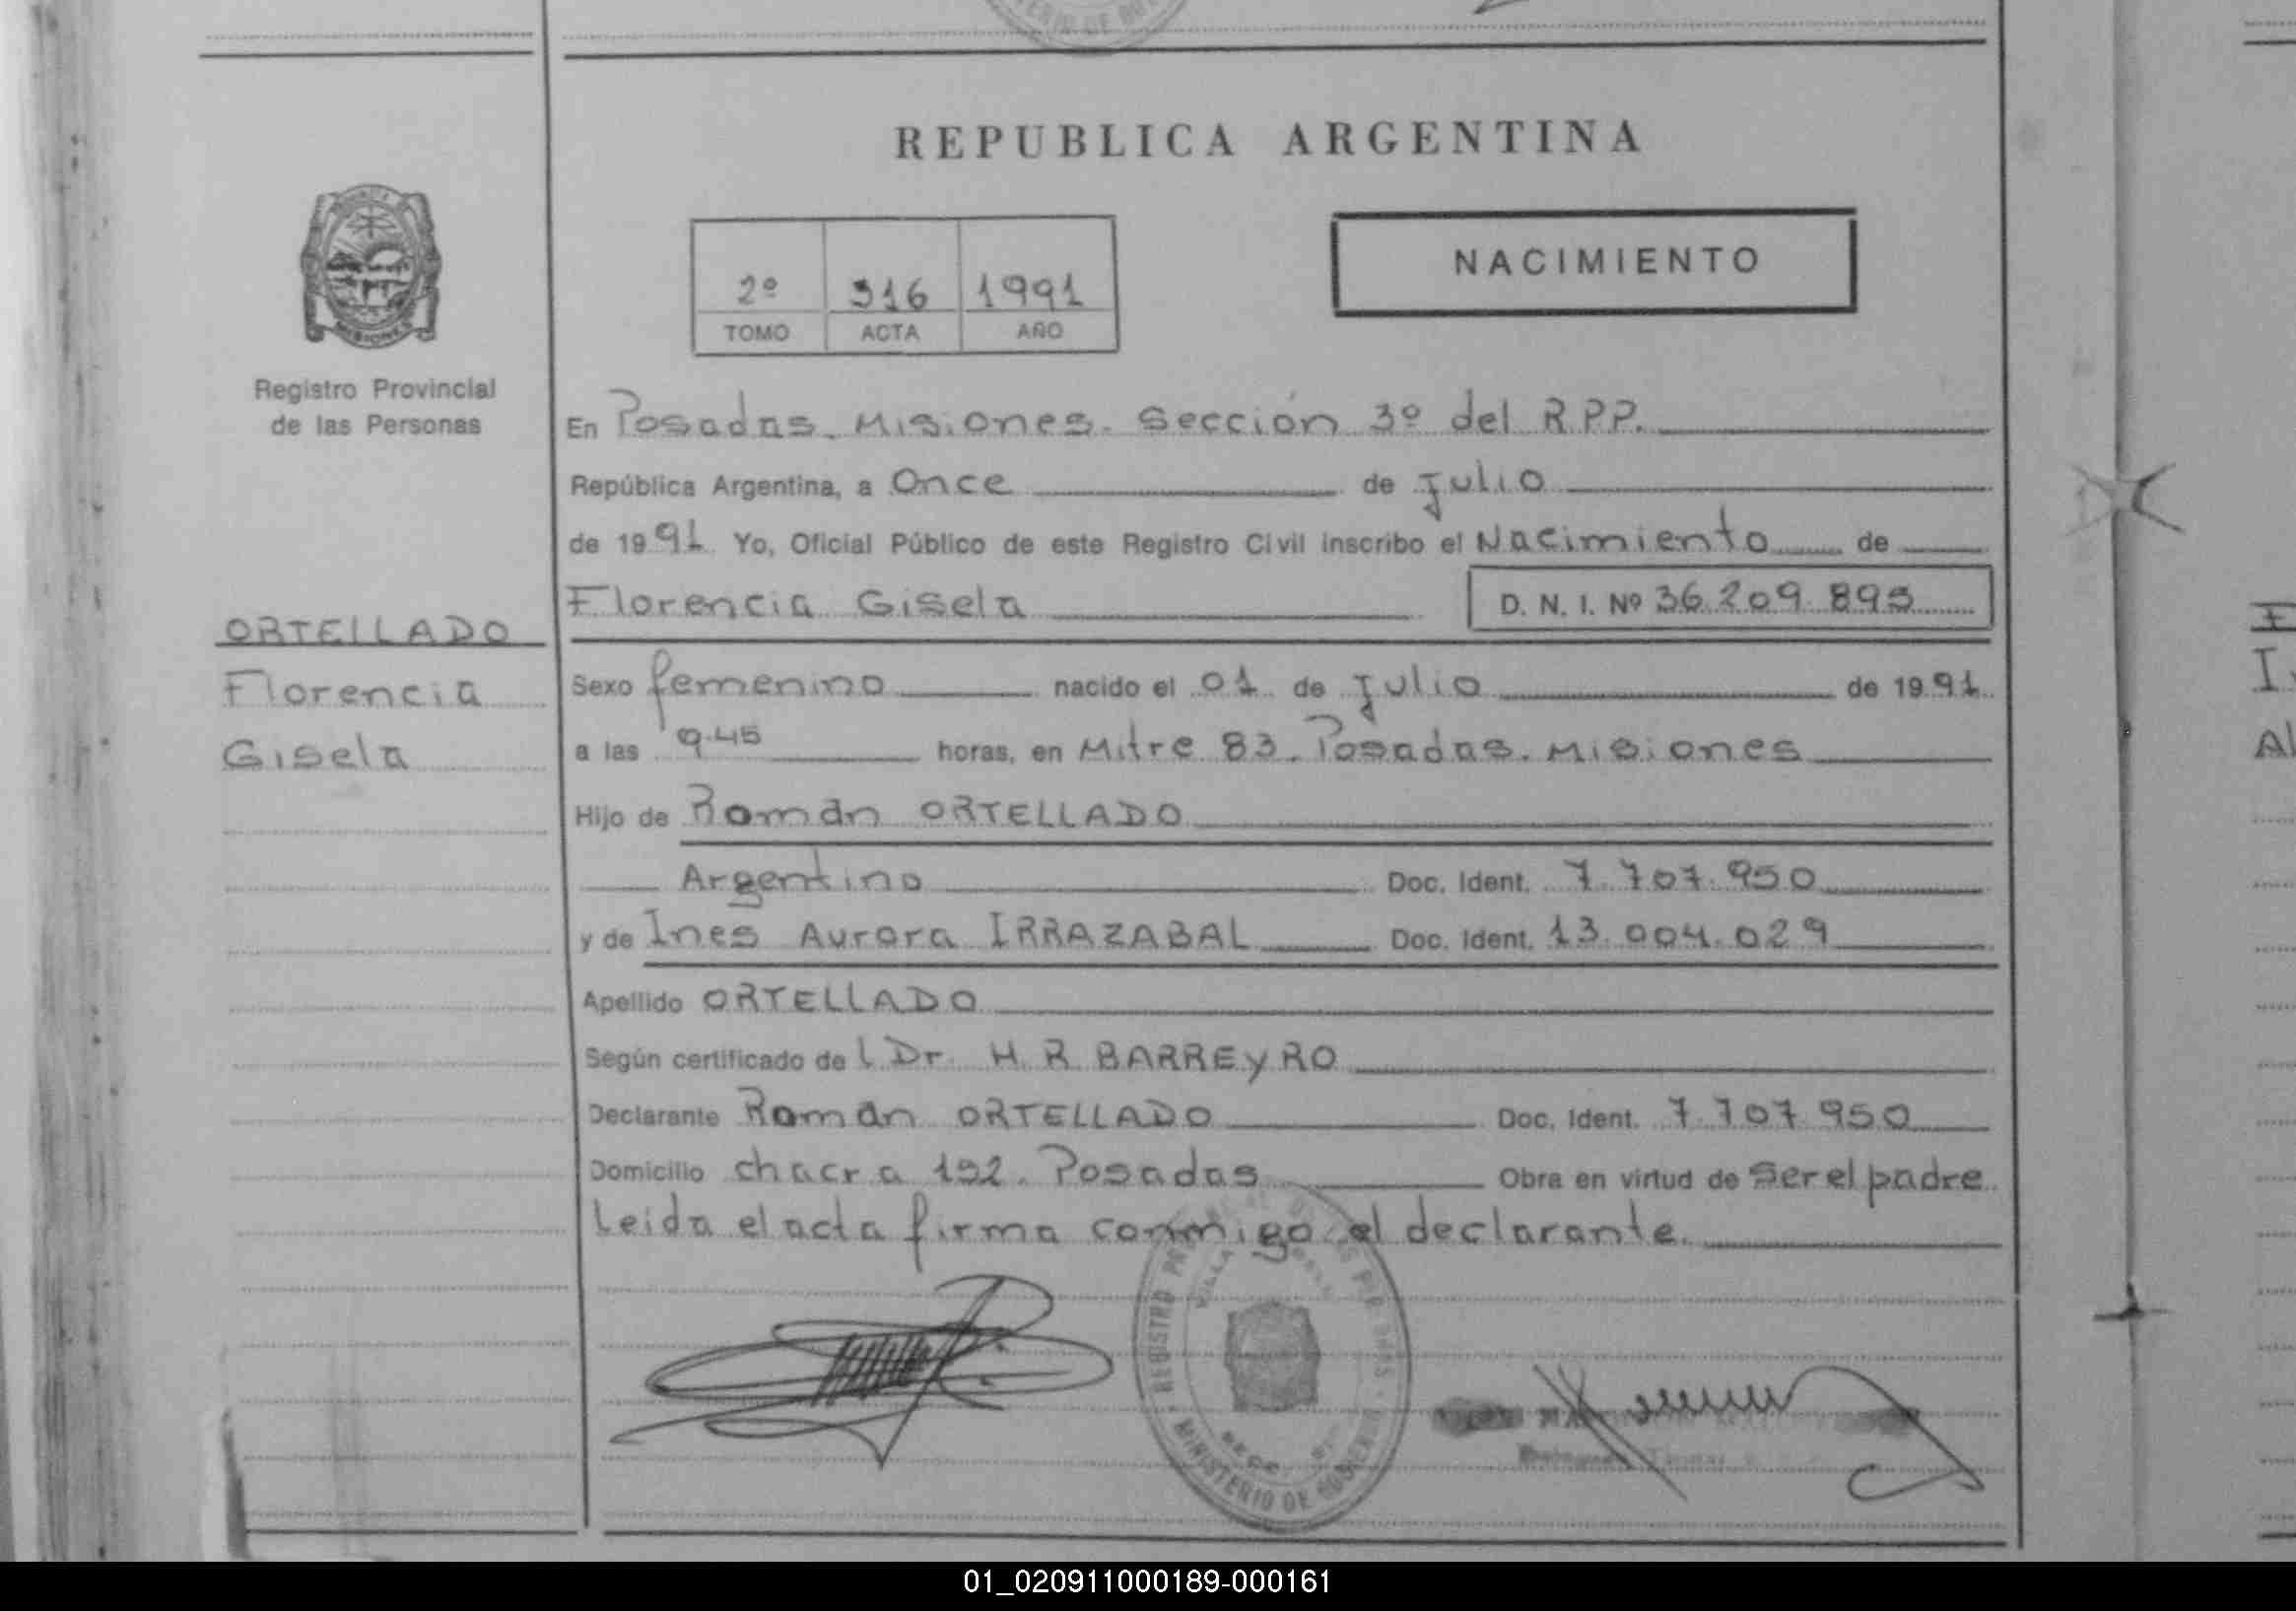 REPUBLICA ARGENTINA
NACIMIENTO
2º 316 1991
TOMO ACTA AÑO
Registro Provincial
de las Personas
En Posadas. Misiones. Sección 3º del R.P.P.
República Argentina, a Once de Julio
de 1991. Yo, Oficial Público de este Registro Civil inscribo el Nacimiento de
Florencia Gisela D. N. I. Nº 36.209.895
ORTELLADO
Florencia
Gisela
Sexo femenino nacido el 01 de Julio de 1991
a las 9.45 horas, en Mitre 83. Posadas. Misiones
Hijo de Román ORTELLADO
Argentino Doc. Ident. 7.707.950
y de Ines Aurora IRRAZABAL Doc. Ident. 13.004.029
Apellido ORTELLADO
Según certificado de l Dr. H. R BARREYRO
Declarante Román ORTELLADO Doc. Ident. 7.707.950
Domicilio chacra 192. Posadas Obra en virtud de ser el padre
Leida el acta firma conmigo el declarante.
MINISTERIO DE GOBIERNO
01_020911000189-000161